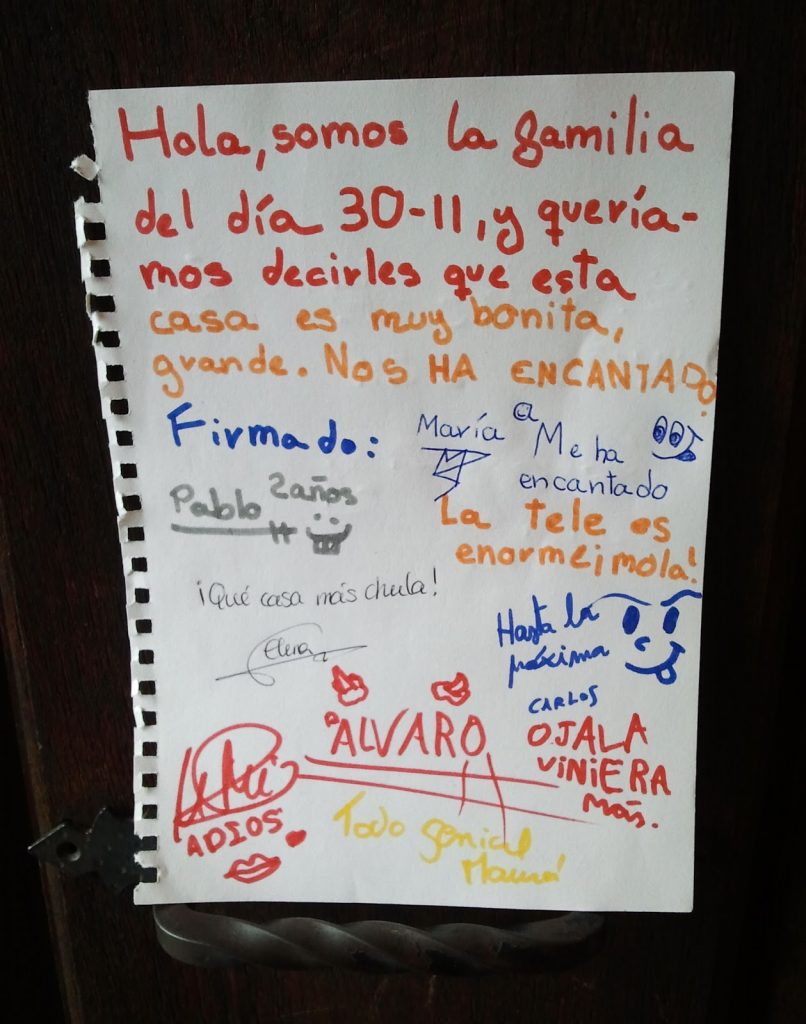 Hola, somos la familia
del día 30-11, y quería-
mos decirles que esta
casa es muy bonita,
grande. Nos HA ENCANTADO
Firmado:
María
a Me ha
encantado
Pablo 2 años
La tele es
enorme¡mola!
¡Qué casa más chula!
Elena
Hasta la
próxima
CARLOS
ALVARO
OJALA
ViNiERA
MÁS.
ADIOS
Todo genial
Mamá